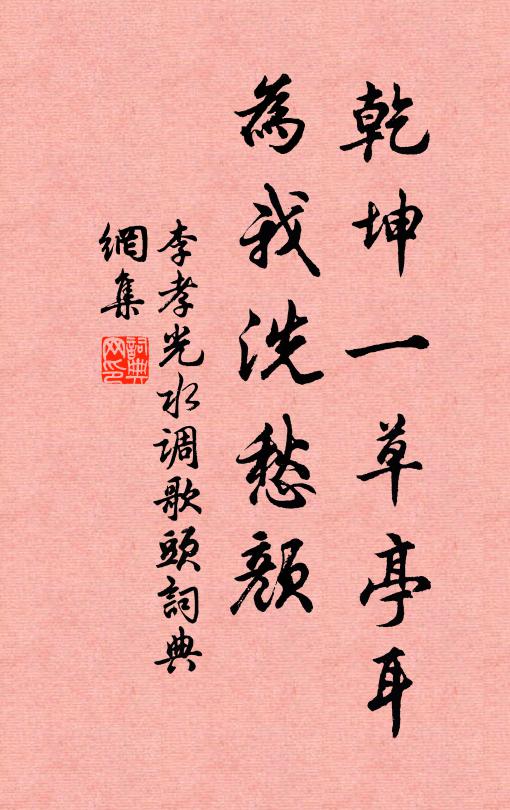 乾坤一草亭耳
為我洗愁顏
李孝光水調歌頭詞典
網集
詞典網印